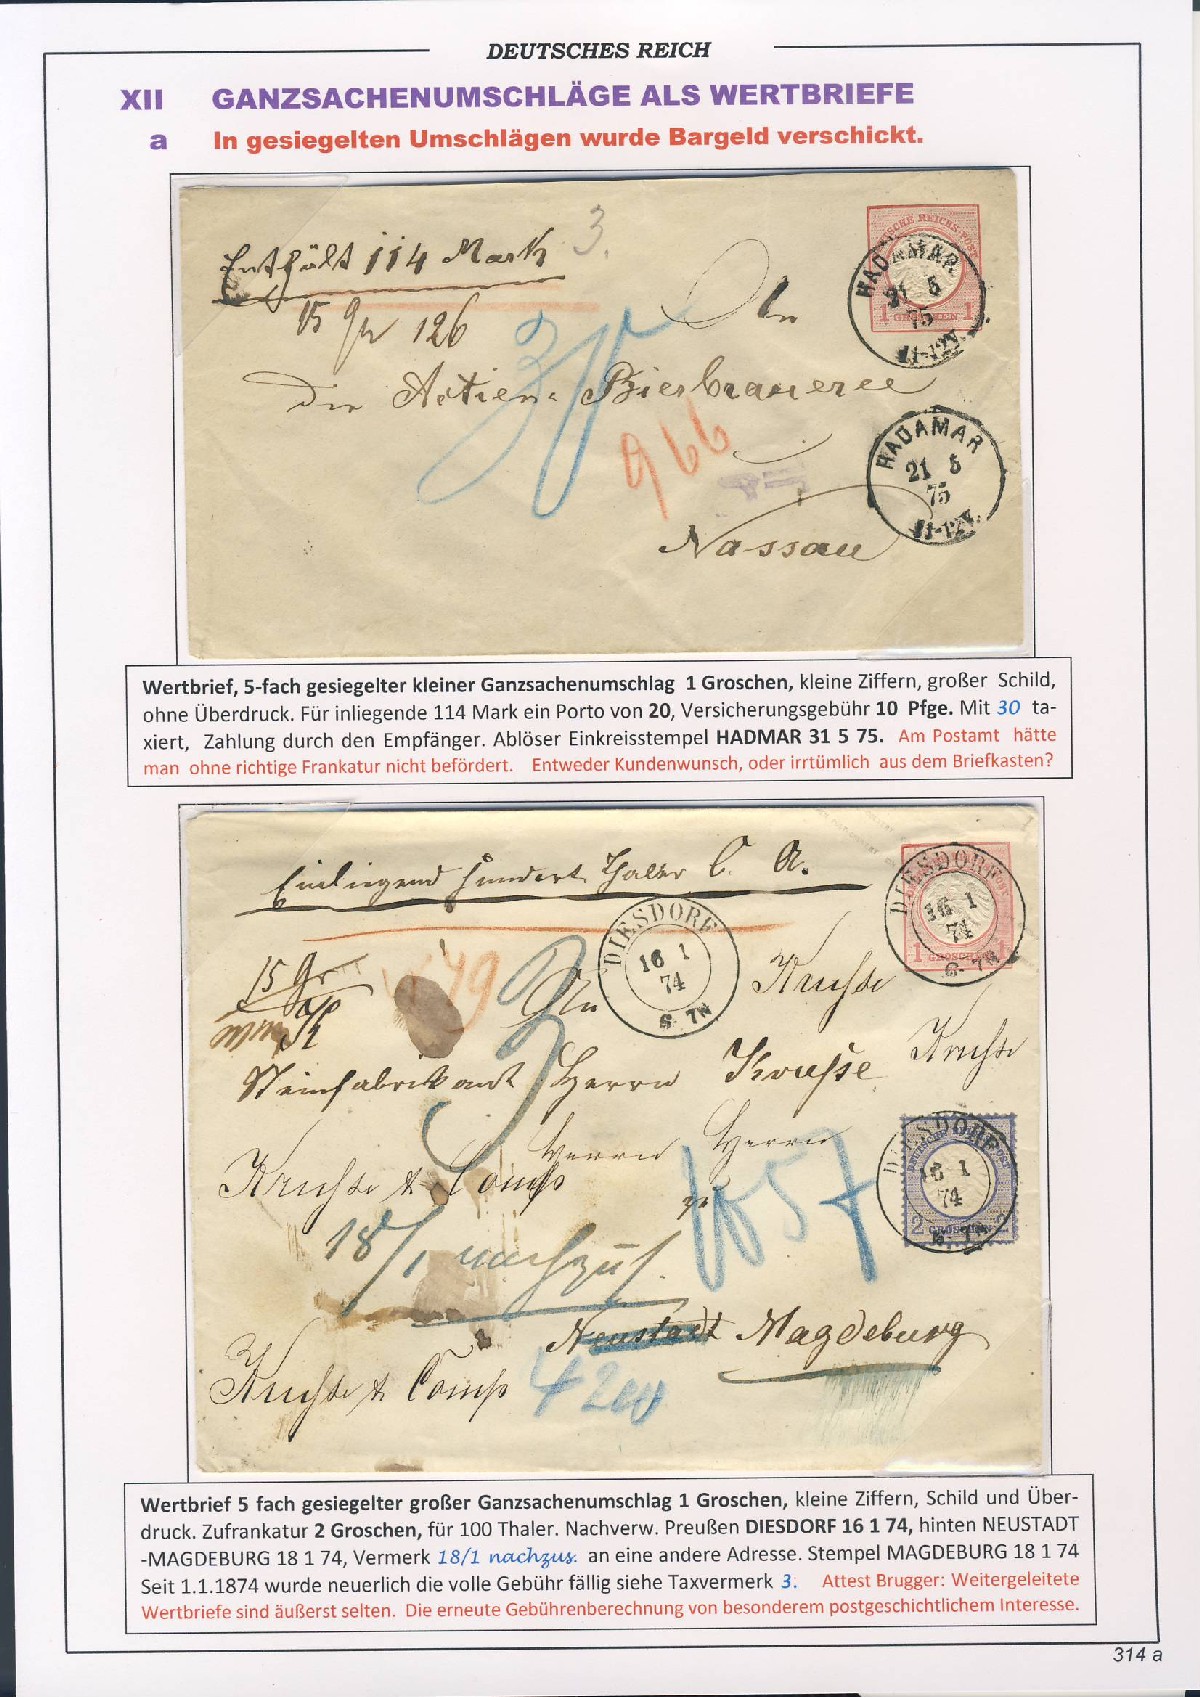 DEUTSCHES REICH
XII GANZSACHENUMSCHLÄGE ALS WERTBRIEFE
a In gesiegelten Umschlägen wurde Bargeld verschickt.
Enthält 114 Mark 3.
15 gr 126
An
Die Actien-Bierbrauerei
966
Nassau
1 1
HADAMAR
21 5
75
11-12V.
HADAMAR
21 5
75
11-12V.
Wertbrief, 5-fach gesiegelter kleiner Ganzsachenumschlag 1 Groschen, kleine Ziffern, großer Schild,
ohne Überdruck. Für inliegende 114 Mark ein Porto von 20, Versicherungsgebühr 10 Pfge. Mit 30 ta-
xiert, Zahlung durch den Empfänger. Ablöser Einkreisstempel HADMAR 31 5 75. Am Postamt hätte
man ohne richtige Frankatur nicht befördert. Entweder Kundenwunsch, oder irrtümlich aus dem Briefkasten?
Einliegend hundert Thaler C. A.
DIESDORF
16 1
74
6-7N
DIESDORF
16 1
74
6-7N
1 GROSCHEN 1
15 gr
3
An
Kruse
Kruse
Steinfabrikant Herrn Kruse
Herrn Herrn
Kruse & Comp
1657
DIESDORF
16 1
74
6-7N
2 GROSCHEN 2
18/1 nachzus.
Neustadt Magdeburg
Kruse & Comp
4200
Wertbrief 5 fach gesiegelter großer Ganzsachenumschlag 1 Groschen, kleine Ziffern, Schild und Über-
druck. Zufrankatur 2 Groschen, für 100 Thaler. Nachverw. Preußen DIESDORF 16 1 74, hinten NEUSTADT
-MAGDEBURG 18 1 74, Vermerk 18/1 nachzus. an eine andere Adresse. Stempel MAGDEBURG 18 1 74
Seit 1.1.1874 wurde neuerlich die volle Gebühr fällig siehe Taxvermerk 3. Attest Brugger: Weitergeleitete
Wertbriefe sind äußerst selten. Die erneute Gebührenberechnung von besonderem postgeschichtlichem Interesse.
314 a